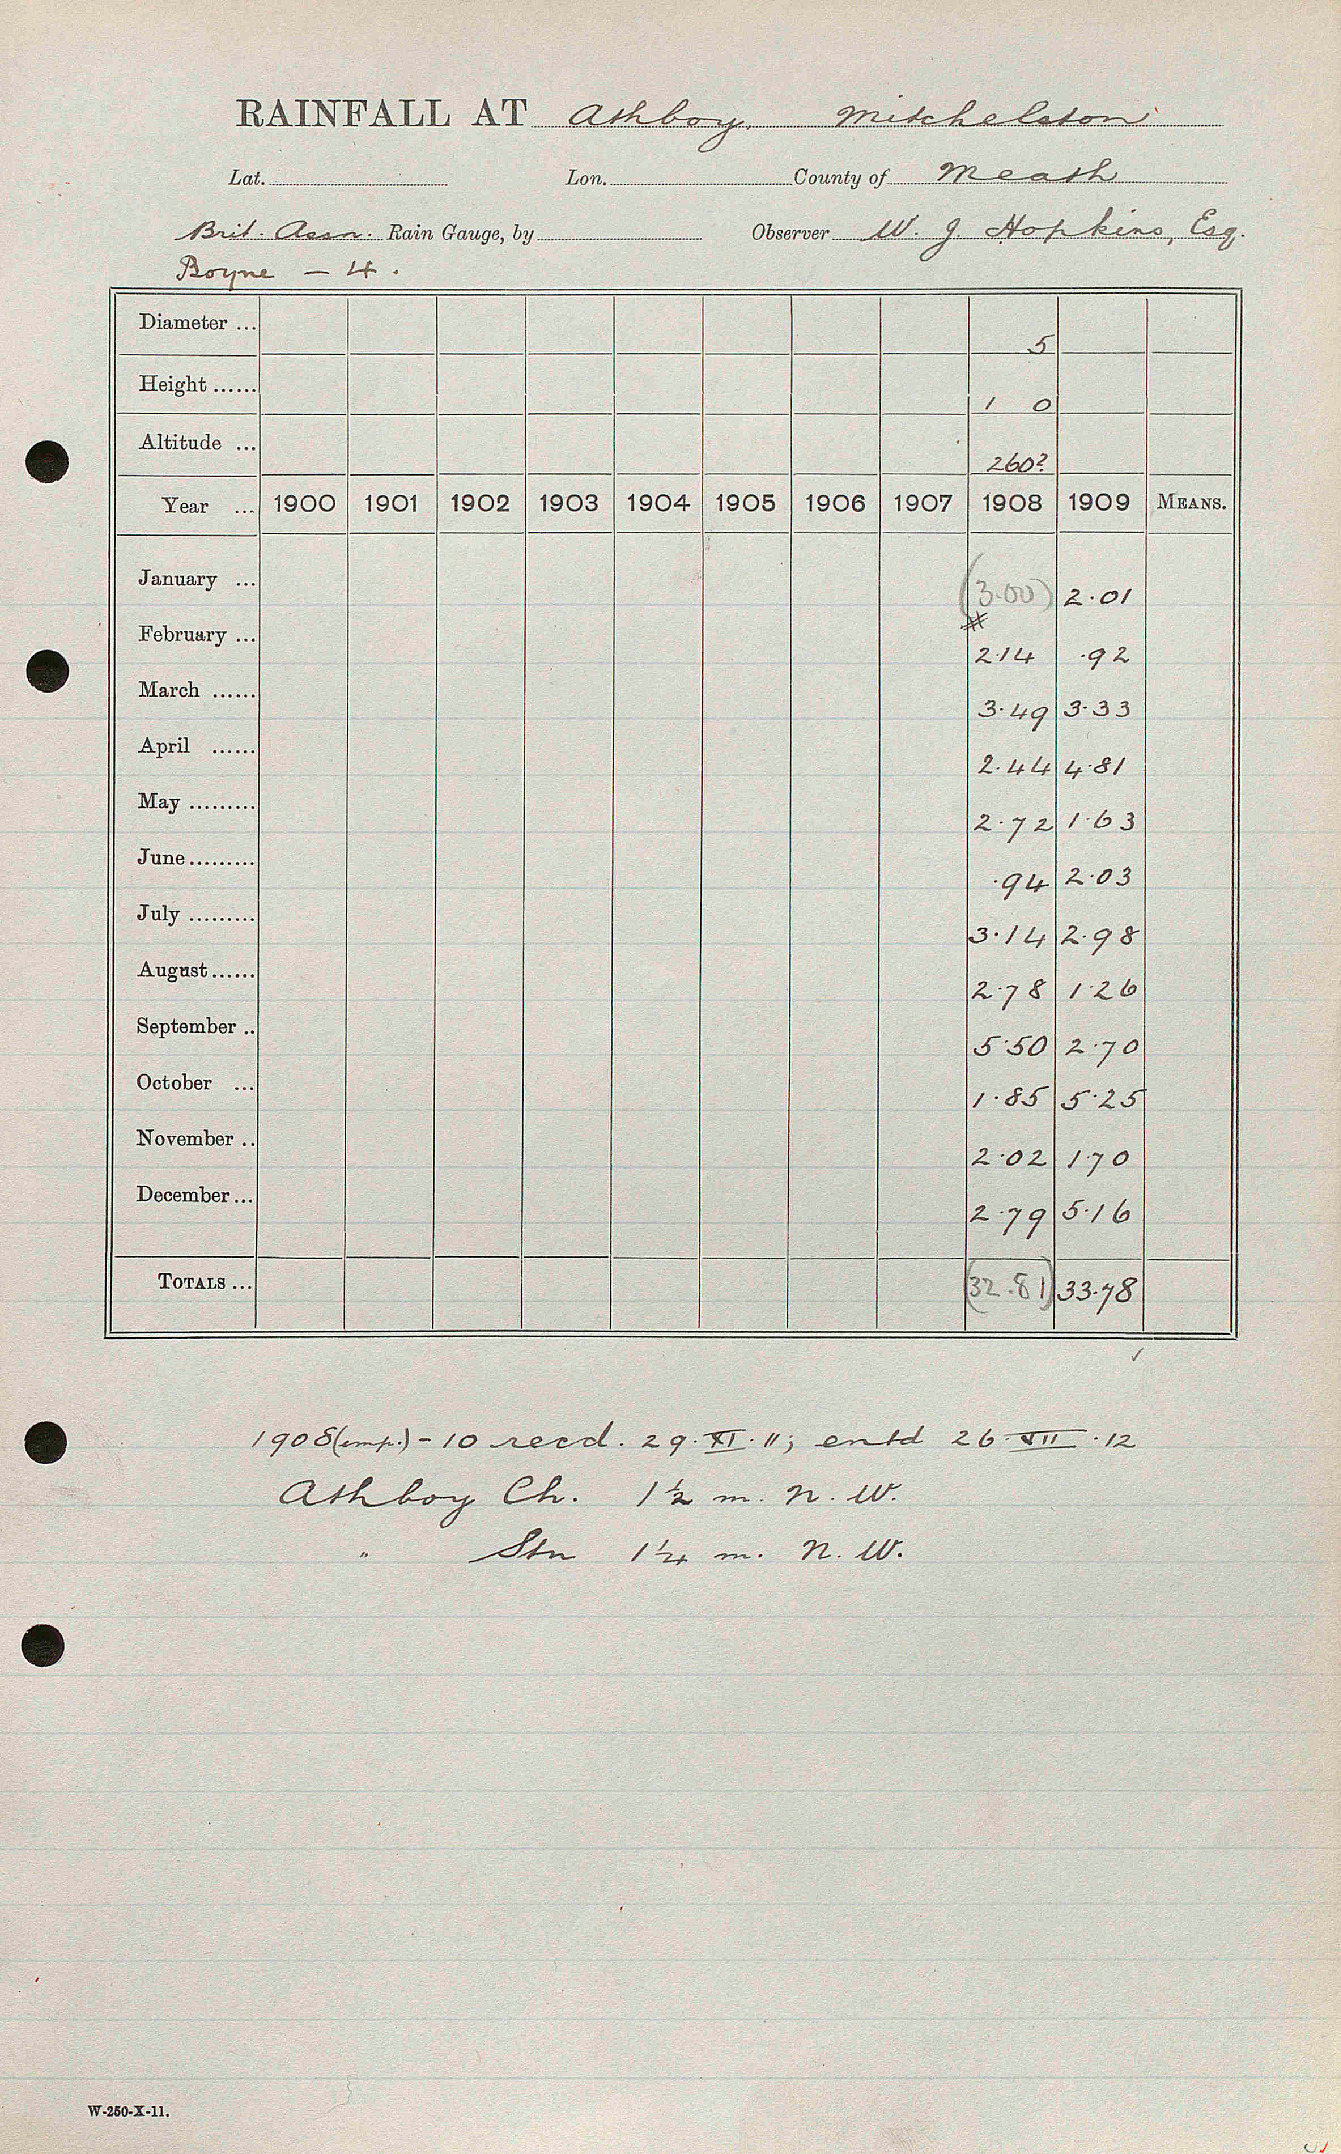 RAINFALL AT Athboy, Mitchelston
Lat. Lon. County of Meath
Brit. Assn. Rain Gauge, by Observer W. J. Hopkins, Esq.
Boyne – 4.
Diameter ... 5
Height ...... 1 0
Altitude ... 260?
Year ... 1900 1901 1902 1903 1904 1905 1906 1907 1908 1909 MEANS.
January ... (3.00) 2.01
#
February ... 2.14 .92
March ...... 3.49 3.33
April ...... 2.44 4.81
May ......... 2.72 1.63
June ......... .94 2.03
July ......... 3.14 2.98
August ...... 2.78 1.26
September .. 5.50 2.70
October ... 1.85 5.25
November .. 2.02 1.70
December ... 2.79 5.16
TOTALS ... (32.81) 33.78
1908 (imp.) – 10 recd. 29.XI.11; entd 26.VII.12
Athboy Ch. 1½ m. N. W.
" Stn 1¼ m. N. W.
W-250-X-11.